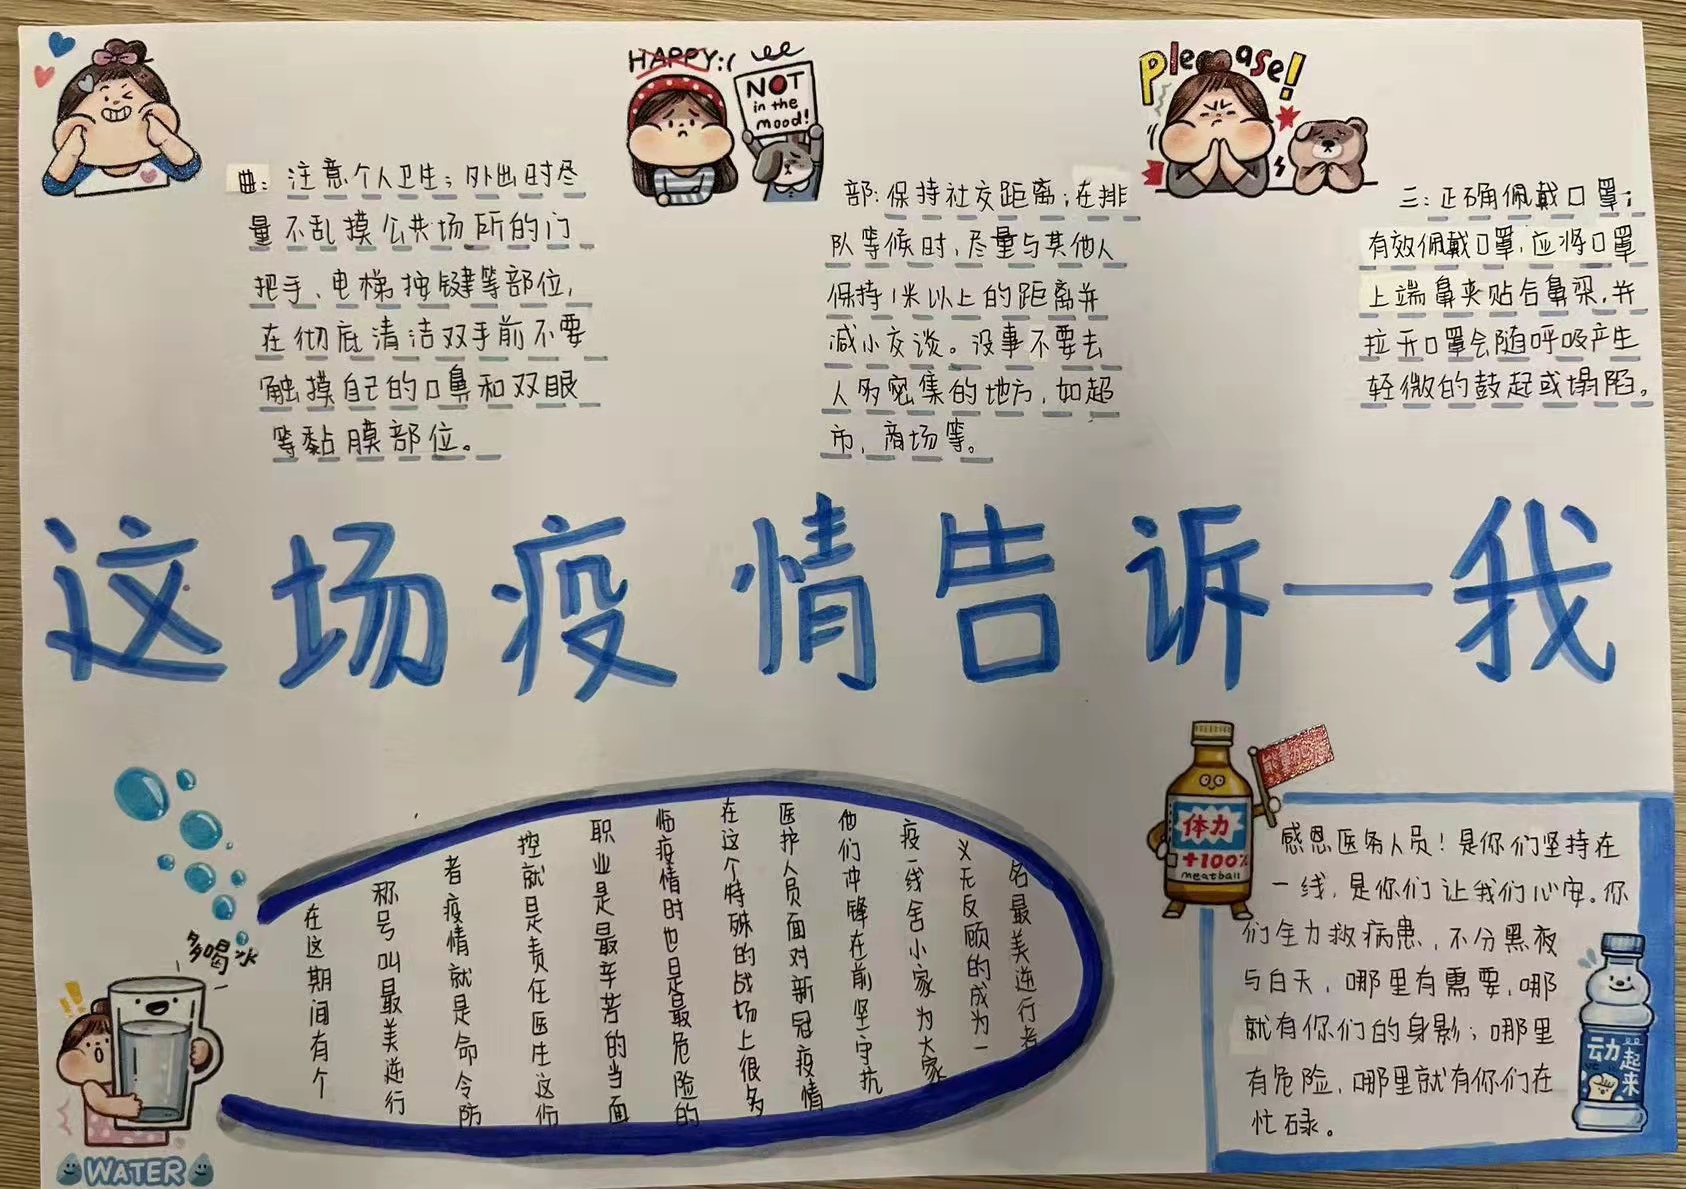 HAPPY:(
NOT
in the
mood!
Please!
曲：注意个人卫生；外出时尽
量不乱摸公共场所的门
把手、电梯按键等部位，
在彻底清洁双手前不要
触摸自己的口鼻和双眼
等黏膜部位。
部：保持社交距离；在排
队等候时，尽量与其他人
保持1米以上的距离并
减小交谈。没事不要去
人多密集的地方，如超
市，商场等。
三：正确佩戴口罩；
有效佩戴口罩，应将口罩
上端鼻夹贴合鼻梁，并
拉开口罩会随呼吸产生
轻微的鼓起或塌陷。
这场疫情告诉一我
多喝水
WATER
在这期间有个
称号叫最美逆行
者疫情就是命令防
控就是责任医生这份
职业是最辛苦的当面
临疫情时也是最危险的
在这个特殊的战场上很多
医护人员面对新冠疫情
他们冲锋在前坚守抗
疫一线舍小家为大家
义无反顾的成为一
名最美逆行者
体力
+100%
meatball
感恩医务人员！是你们坚持在
一线，是你们让我们心安。你
们全力救病患，不分黑夜
与白天，哪里有需要，哪
就有你们的身影；哪里
有危险，哪里就有你们在
忙碌。
动起来